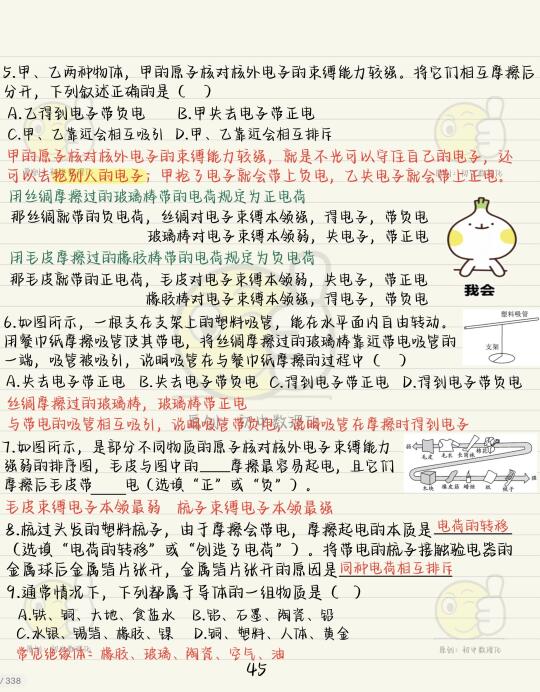 5.甲、乙两种物体，甲的原子核对核外电子的束缚能力较强。将它们相互摩擦后
分开，下列叙述正确的是（　）
A.乙得到电子带负电　B.甲失去电子带正电
C.甲、乙靠近会相互吸引　D.甲、乙靠近会相互排斥
甲的原子核对核外电子的束缚能力较强，就是不光可以守住自己的电子，还
可以去抢别人的电子；甲抢了电子就会带上负电，乙失电子就会带上正电。
用丝绸摩擦过的玻璃棒带的电荷规定为正电荷
那丝绸就带的负电荷，丝绸对电子束缚本领强，得电子，带负电
玻璃棒对电子束缚本领弱，失电子，带正电
用毛皮摩擦过的橡胶棒带的电荷规定为负电荷
那毛皮就带的正电荷，毛皮对电子束缚本领弱，失电子，带正电
橡胶棒对电子束缚本领强，得电子，带负电
我会
6.如图所示，一根支在支架上的塑料吸管，能在水平面内自由转动。
用餐巾纸摩擦吸管使其带电，将丝绸摩擦过的玻璃棒靠近带电吸管的
一端，吸管被吸引，说明吸管在与餐巾纸摩擦的过程中（　）
塑料吸管
支架
A.失去电子带正电　B.失去电子带负电　C.得到电子带正电　D.得到电子带负电
丝绸摩擦过的玻璃棒，玻璃棒带正电
与带电的吸管相互吸引，说明吸管带负电，说明吸管在摩擦时得到电子
7.如图所示，是部分不同物质的原子核对核外电子束缚能力
强弱的排序图，毛皮与图中的____摩擦最容易起电，且它们
摩擦后毛皮带____电（选填“正”或“负”）。
弱
毛皮
毛衣
头发
棉花
木块
橡皮筋
蜡烛
纸
梳子
强
毛皮束缚电子本领最弱　梳子束缚电子本领最强
8.梳过头发的塑料梳子，由于摩擦会带电，摩擦起电的本质是电荷的转移
（选填“电荷的转移”或“创造了电荷”）。将带电的梳子接触验电器的
金属球后金属箔片张开，金属箔片张开的原因是同种电荷相互排斥
9.通常情况下，下列都属于导体的一组物质是（　）
A.铁、铜、大地、食盐水　B.铝、石墨、陶瓷、铅
C.水银、锡箔、橡胶、镍　D.铜、塑料、人体、黄金
常见绝缘体：橡胶、玻璃、陶瓷、空气、油
原创：初中数理化
45
/338